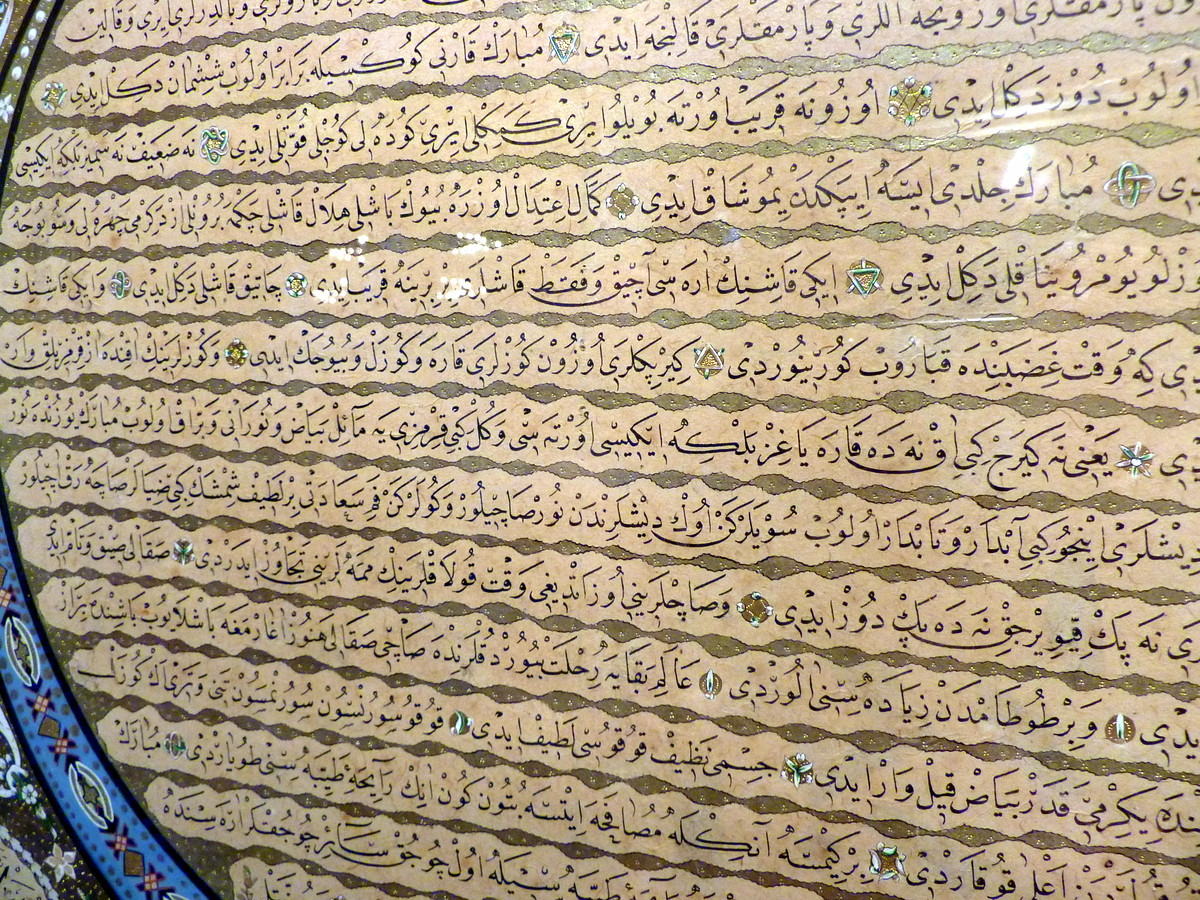 پارمقلری اوزونجه اللری وپارمقلری قالنجه ایدی مبارك قارنی كوكسیله برابر اولوب شیشمان دكل ایدی
اولوب دوز دكل ایدی اوزونه قریب اورته بویلو ایری كمكلی ایری كوده لی كوجلی قوتلی ایدی نه ضعیف نه سمیز بلكه ایكیسی
مبارك جلدی ایسه ایپكدن یموشاق ایدی كمال اعتدال اوزره بیوك باشلی هلال قاشلی چكمه برونلی ازدكرمی چهره لی
یومرو یناقلی دكل ایدی ایكی قاشنك اره سی آچیق وفقط قاشلری بربرینه قریب ایدی چاتیق قاشلی دكل ایدی وایكی قاشنك
كه وقت غضبنده قباروب كورینوردی كیرپكلری اوزون كوزلری قاره وكوزل وبیوجك ایدی وكوزلرینك اقنده ازقرمزیلق وار
یعنی نه كیرج كبی اق نه ده قاره یاغز بلكه ایكیسی اورته سی وكل كبی قرمزی یه مائل بیاض ونورانی وبراق اولوب مبارك یوزنده نور
دیشلری اینجو كبی آبدار وتابدار اولوب سویلركن اوك دیشلرندن نور صاچیلور وكولركن فم سعادتی بر لطیف شمشك كبی ضیالر صاچه رق آچیلور
نه پك قیویرجق نه ده پك دوز ایدی وصاچلرینی اوزاتدیغی وقت قولاقلرینك ممه لرینی تجاوز ایدردی صقالی صیق وتام ایدی
وبر طوطامدن زیاده سنی الوردی عالم بقایه رحلت بیوردقلرنده صاچی صقالی هنوز اغارمغه باشلایوب باشنده براز
یكرمی قدر بیاض قیل وار ایدی جسمی نظیف قوقوسی لطیف ایدی قوقو سورنسون سورنمسون تنی وتری اك كوزل
اعلی قوقاردی بر كیمسه آنكله مصافحه ایتسه بتون كون انك رایحه طیبه سنی طویاردی مبارك
سیله اول چوجق سائر چوجقلر اره سنده